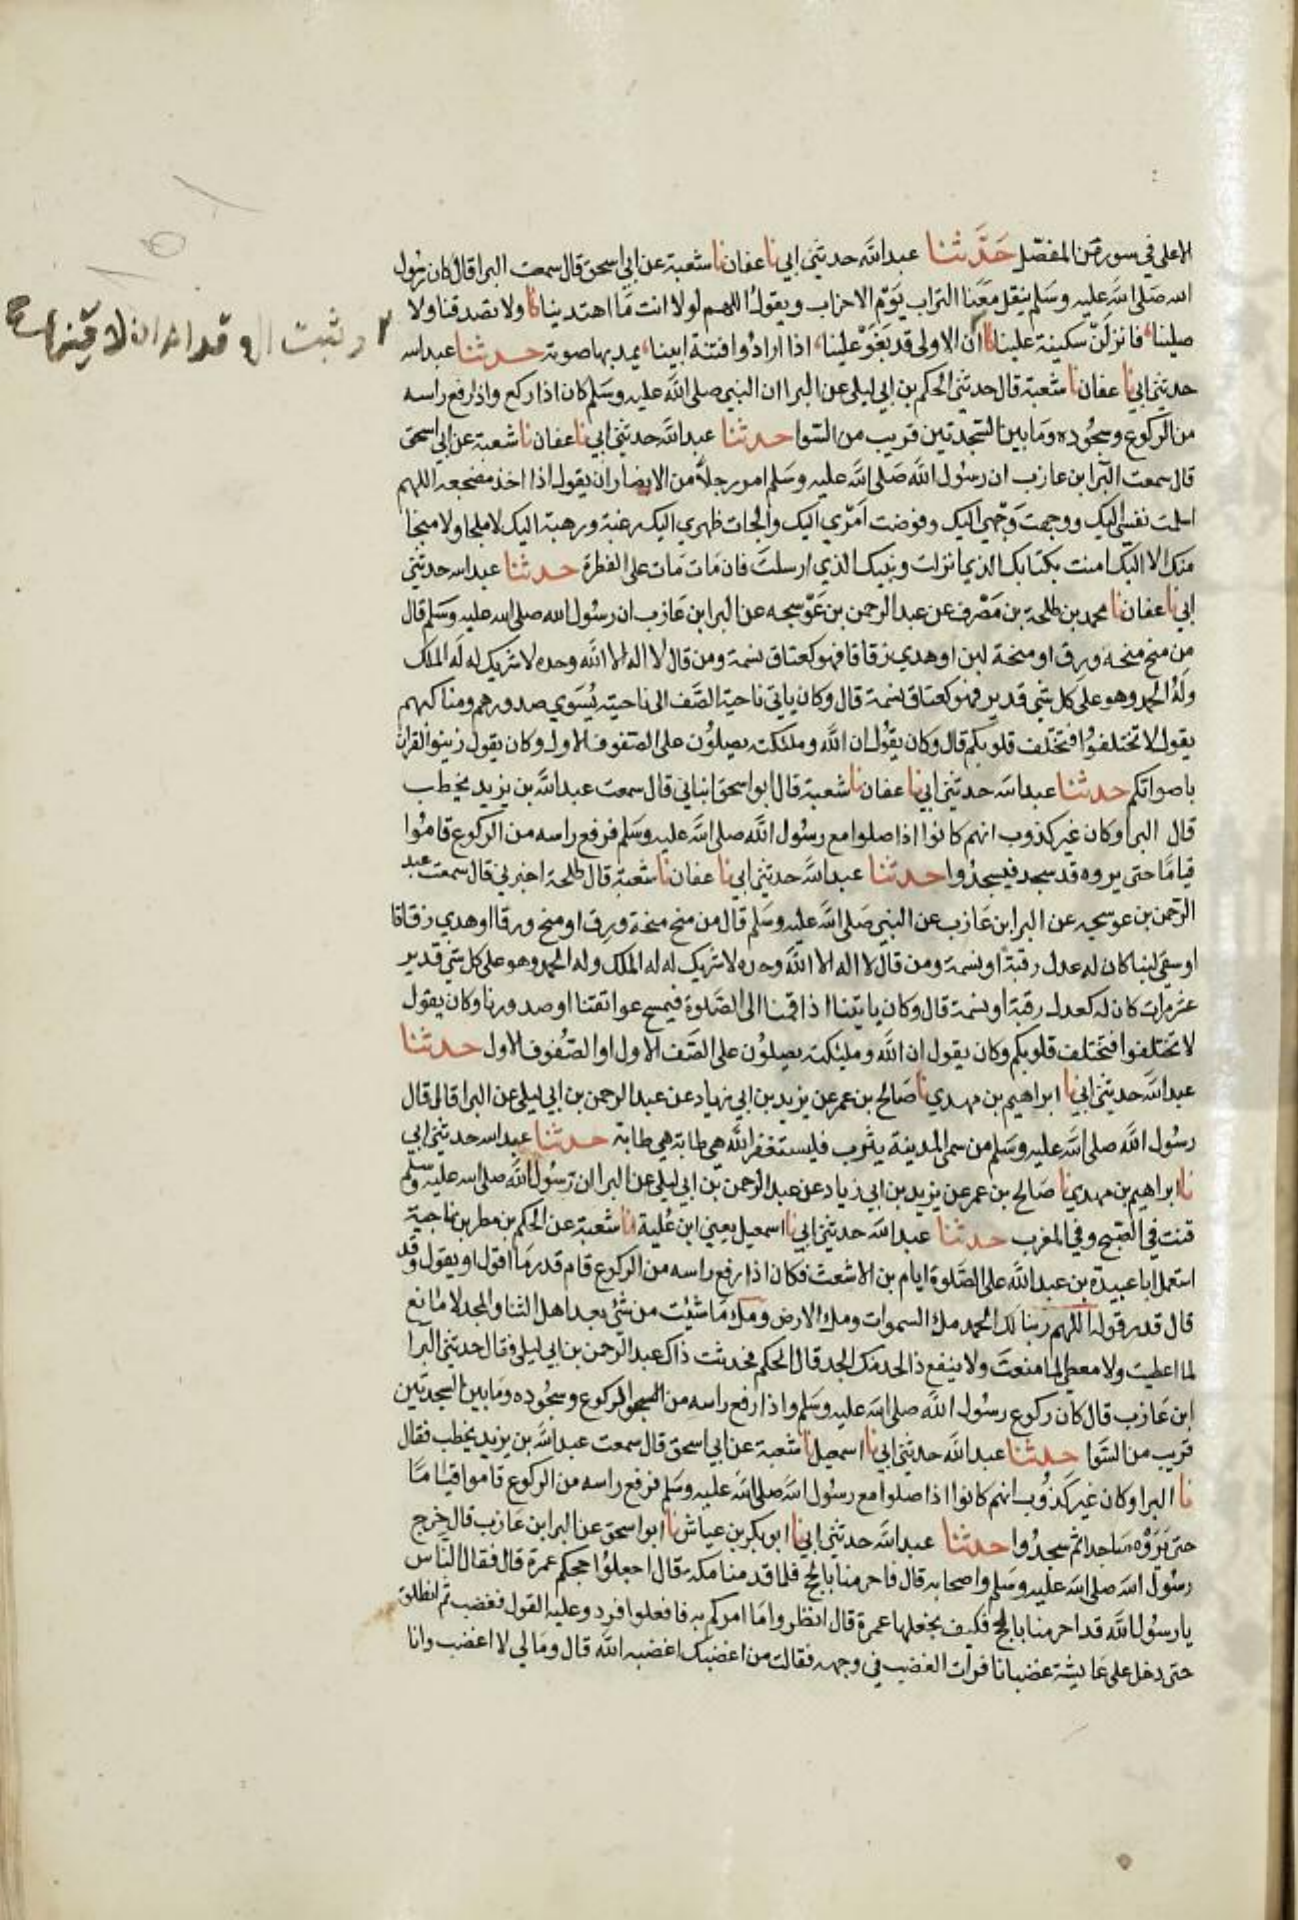 الاعلى في سور من المفصل حَدَّثنا عبدالله حدثني ابي نا عفان نا شعبة عن ابي اسحق قال سمعت البرا قال كان رسول
الله صلى الله عليه وسلم ينقل معنا التراب يوم الاحزاب ويقول اللهم لولا انت ما اهتدينا ولا تصدقنا ولا
صلينا فانزلن سكينة علينا ان الاولى قد بغوا علينا اذا ارادوا فتنة ابينا يمد بها صوته حدثنا عبدالله
وثبت الاقدام ان لاقينا
حدثني ابي نا عفان نا شعبة قال حدثني الحكم بن ابي ليلى عن البرا ان النبي صلى الله عليه وسلم كان اذا ركع واذا رفع راسه
من الركوع وسجوده وما بين السجدتين قريب من السوا حدثنا عبدالله حدثني ابي نا عفان نا شعبة عن ابي اسحق
قال سمعت البرا بن عازب ان رسول الله صلى الله عليه وسلم امر رجلا من الانصار ان يقول اذا اخذ مضجعه اللهم
اسلمت نفسي اليك ووجهت وجهي اليك وفوضت امري اليك والجات ظهري اليك رغبة ورهبة اليك لا ملجا ولا منجا
منك الا اليك امنت بكتابك الذي انزلت ونبيك الذي ارسلت فان مات مات على الفطرة حدثنا عبدالله حدثني
ابي نا عفان نا محمد بن طلحة بن مصرف عن عبدالرحمن بن عوسجه عن البرا بن عازب ان رسول الله صلى الله عليه وسلم قال
من منح منحة ورق او منحة لبن او هدي زقاقا فهو كعتاق نسمة ومن قال لا اله الا الله وحده لا شريك له له الملك
وله الحمد وهو على كل شي قدير فهو كعتاق نسمة قال وكان ياتي ناحية الصف الى ناحيته يسوي صدورهم ومناكبهم
يقول لا تختلفوا فتختلف قلوبكم قال وكان يقول ان الله وملئكته يصلون على الصفوف الاول وكان يقول زينوا القران
باصواتكم حدثنا عبدالله حدثني ابي نا عفان نا شعبة قال ابو اسحق انباني قال سمعت عبدالله بن يزيد يخطب
قال البرا وكان غير كذوب انهم كانوا اذا صلوا مع رسول الله صلى الله عليه وسلم فرفع راسه من الركوع قاموا
قياما حتى يروه قد سجد فيسجدوا حدثنا عبدالله حدثني ابي نا عفان نا شعبة قال طلحة اخبرني قال سمعت عبد
الرحمن بن عوسجه عن البرا بن عازب عن النبي صلى الله عليه وسلم قال من منح منحة ورق او منح ورقا او هدي زقاقا
او سقى لبنا كان له عدل رقبة او نسمة ومن قال لا اله الا الله وحده لا شريك له له الملك وله الحمد وهو على كل شي قدير
عشر مرات كان له كعدل رقبة او نسمة قال وكان ياتينا اذا قمنا الى الصلوة فيمسح عواتقنا او صدورنا وكان يقول
لا تختلفوا فتختلف قلوبكم وكان يقول ان الله وملئكته يصلون على الصف الاول او الصفوف الاول حدثنا
عبدالله حدثني ابي نا ابراهيم بن مهدي نا صالح بن عمر عن يزيد بن ابي زياد عن عبد الرحمن بن ابي ليلى عن البرا قال قال
رسول الله صلى الله عليه وسلم من سمى المدينة يثرب فليستغفر الله هي طابة هي طابة حدثنا عبدالله حدثني ابي
نا ابراهيم بن مهدي نا صالح بن عمر عن يزيد بن ابي زياد عن عبد الرحمن بن ابي ليلى عن البرا ان رسول الله صلى الله عليه وسلم
قنت في الصبح وفي المغرب حدثنا عبدالله حدثني ابي نا اسمعيل يعني ابن علية انا شعبة عن الحكم بن مطر بن ناجية
استعمل ابا عبيدة بن عبدالله على الصلوة ايام بن الاشعث فكان اذا رفع راسه من الركوع قام قدر ما اقول او يقول وقد
قال قدر قوله اللهم ربنا لك الحمد ملء السموات وملء الارض وملء ما شئت من شئ بعد اهل الثنا والمجد لا مانع
لما اعطيت ولا معطي لما منعت ولا ينفع ذا الجد منك الجد قال الحكم فحدثت ذاك عبد الرحمن بن ابي ليلى وقال حدثني البرا
ابن عازب قال كان ركوع رسول الله صلى الله عليه وسلم واذا رفع راسه من الركوع وسجوده وما بين السجدتين
قريب من السوا حدثنا عبدالله حدثني ابي نا اسمعيل نا شعبة عن ابي اسحق قال سمعت عبدالله بن يزيد يخطب فقال
نا البرا وكان غير كذوب انهم كانوا اذا صلوا مع رسول الله صلى الله عليه وسلم فرفع راسه من الركوع قاموا قياما
حتى يروه ساجدا ثم سجدوا حدثنا عبدالله حدثني ابي نا ابو بكر بن عياش نا ابو اسحق عن البرا بن عازب قال خرج
رسول الله صلى الله عليه وسلم واصحابه قال فاحرمنا بالحج فلما قدمنا مكة قال اجعلوا حجكم عمرة قال فقال الناس
يا رسول الله قد احرمنا بالحج فكيف نجعلها عمرة قال انظروا ما امركم به فافعلوا فردوا عليه القول فغضب ثم انطلق
حتى دخل على عايشة غضبانا فرات الغضب في وجهه فقالت من اغضبك اغضبه الله قال وما لي لا اغضب وانا